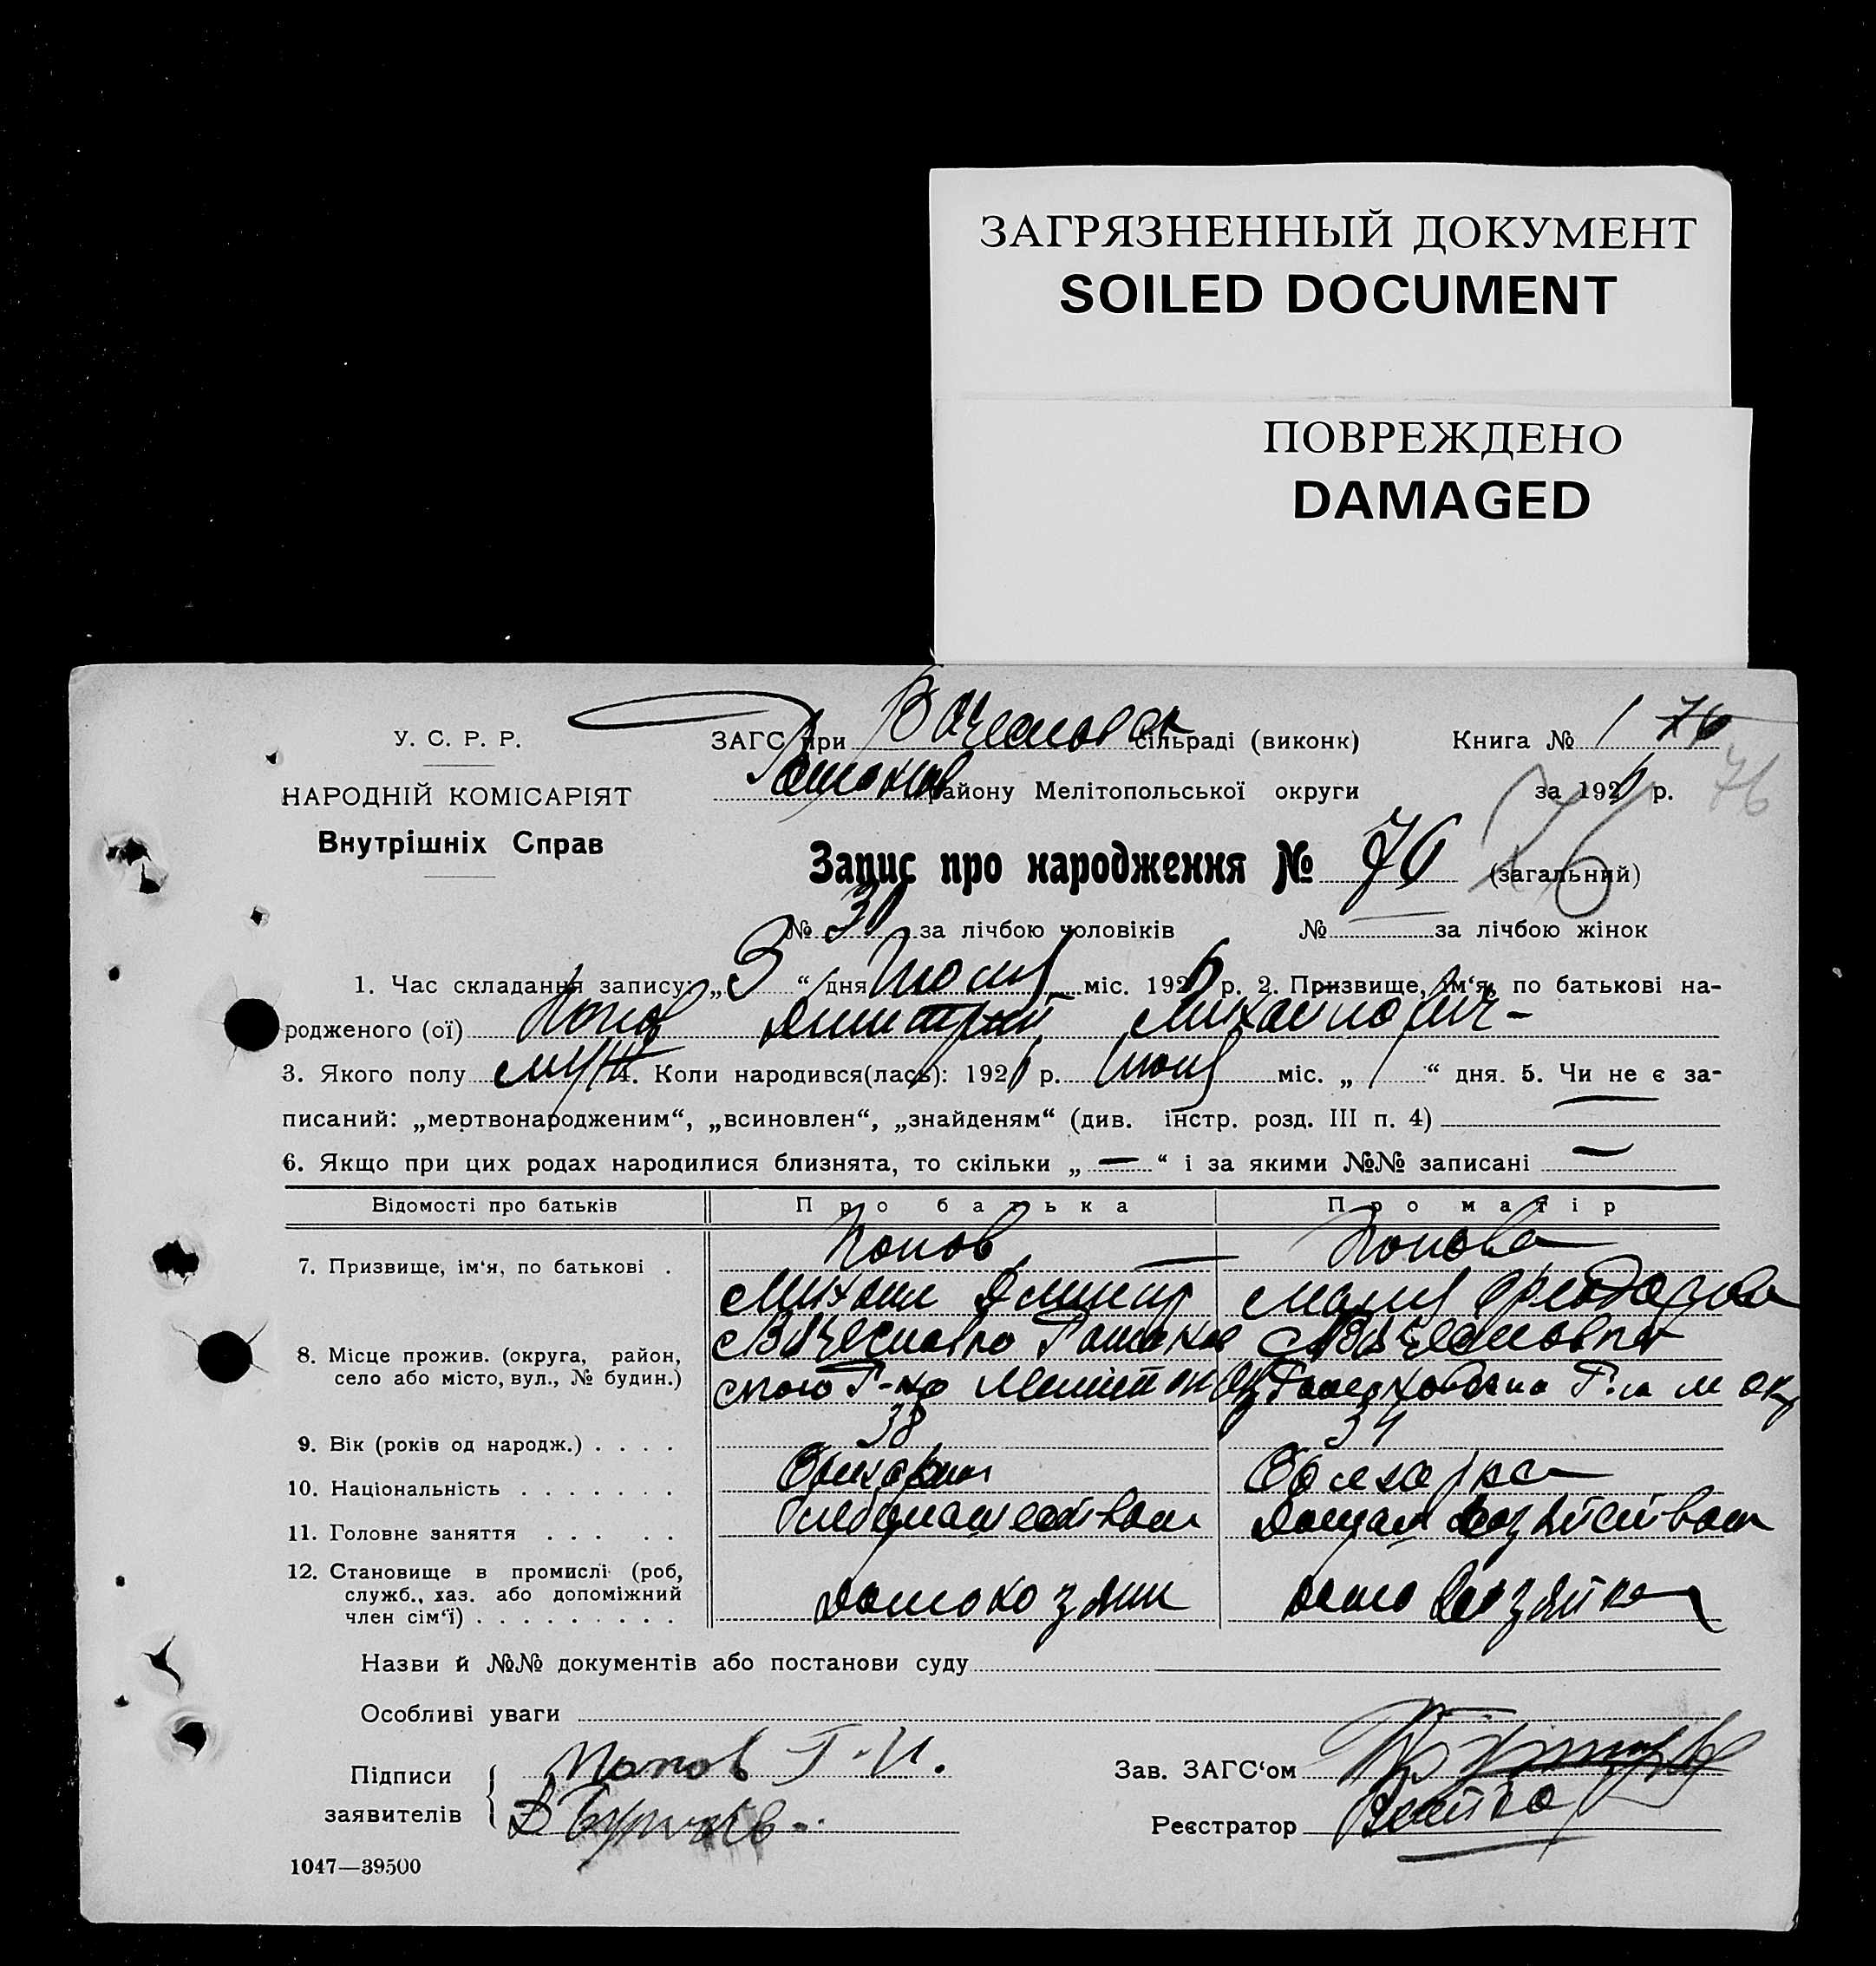 ЗАГРЯЗНЕННЫЙ ДОКУМЕНТ
SOILED DOCUMENT
ПОВРЕЖДЕНО
DAMAGED
У. С. Р. Р.
НАРОДНІЙ КОМІСАРІЯТ
Внутрішніх Справ
ЗАГС при сільраді (виконк) Книга № 1 76
району Мелітопольської округи за 1926 р. 76
Запис про народження № 76 76 (загальний)
№ 30 за лічбою чоловіків № — за лічбою жінок
1. Час складання запису: „3“ дня Июля міс. 1926 р. 2. Призвище, ім‘я, по батькові на-
родженого (ої) Попов Димитрий Михайлович –
3. Якого полу муж 4. Коли народився(лась): 1926 р. июля міс. „1“ дня. 5. Чи не є за-
писаний: „мертвонародженим“, „всиновлен“, „знайденям“ (див. інстр. розд. III п. 4) —
6. Якщо при цих родах народилися близнята, то скільки „—“ і за якими №№ записані —
Відомості про батьків Про батька Про матір
7. Призвище, ім‘я, по батькові . Попов Попова
Михаил Димитр Мария Феодорова
8. Місце прожив. (округа, район,
село або місто, вул., № будин.)
9. Вік (років од народж.) . . . . 38 34
10. Національність . . . . . . . Болгарин Болгарка
11. Головне заняття . . . . . хлебопашеством домаш хозяйством
12. Становище в промислі (роб,
служб., хаз. або допоміжний
член сім‘ї) . . . . . . . . . домохозяин домохозяйка
Назви й №№ документів або постанови суду
Особливі уваги
Підписи заявителів Попов Г. И.
Зав. ЗАГС‘ом
Реєстратор
1047—39500